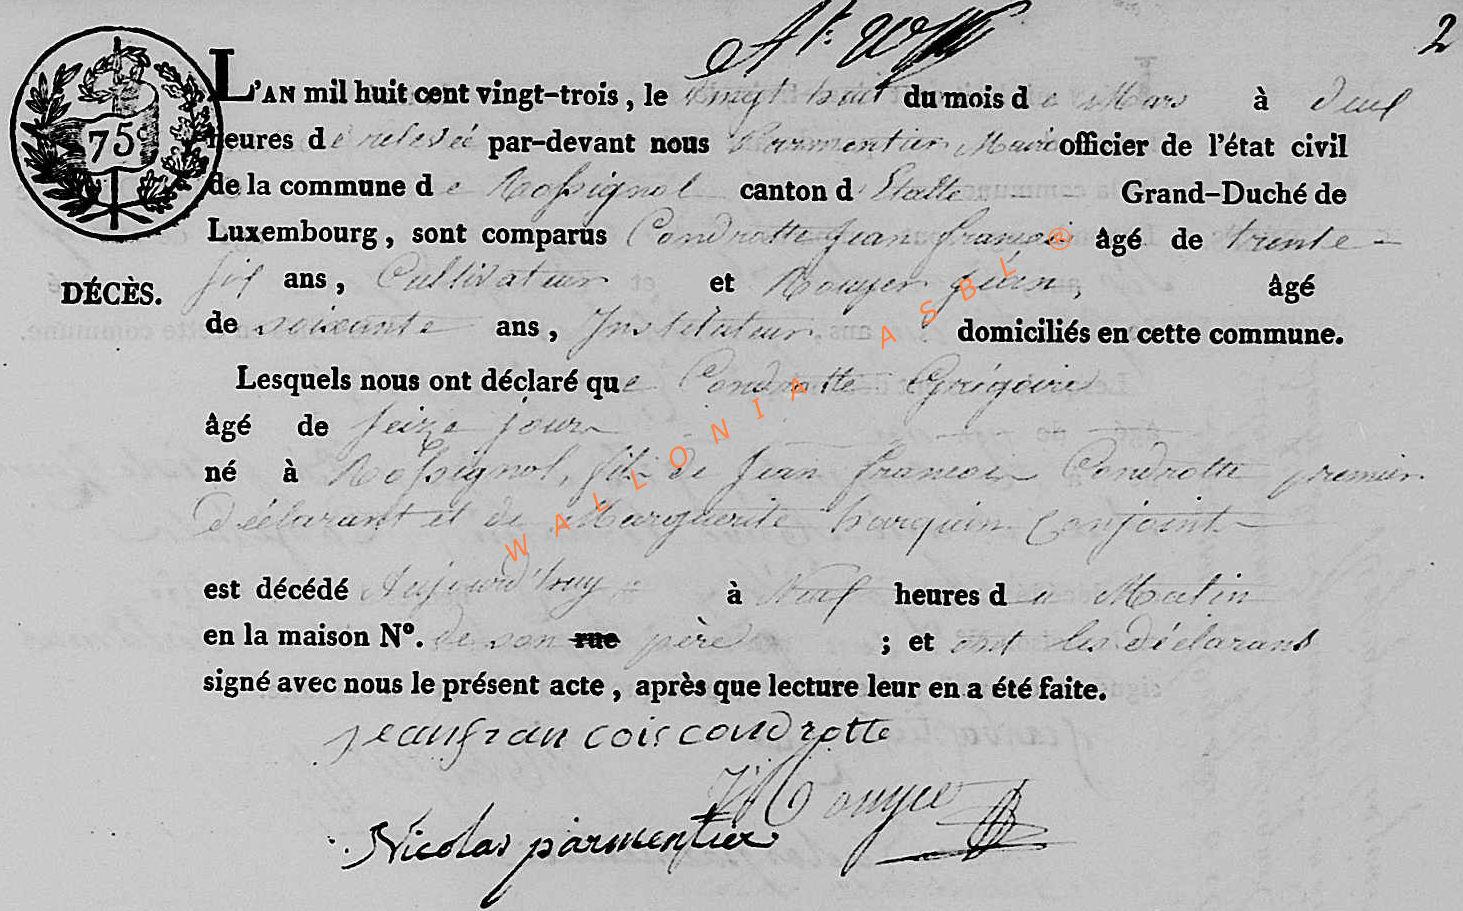 2
75c
L'AN mil huit cent vingt-trois, le vingt huit du mois de Mars à deux
heures de relevée par-devant nous Parmentier Maire officier de l'état civil
de la commune de Rossignol canton d'Etalle Grand-Duché de
Luxembourg, sont comparus Condrotte Jean francois âgé de trente
DÉCÈS.
six ans, Cultivateur et Rouyer Jean, âgé
de soixante ans, Instituteur domiciliés en cette commune.
Lesquels nous ont déclaré que Condrotte Grégoire
âgé de seize jours
né à Rossignol, fils de Jean francois Condrotte premier
déclarant et de Marguerite harquin conjoints
est décédé Aujourd'huy à Neuf heures du Matin
en la maison N°. de son rue père ; et ont les déclarans
signé avec nous le présent acte, après que lecture leur en a été faite.
jean francois condrotte
Rouyer
Nicolas parmentier
WALLONIA ASBL @